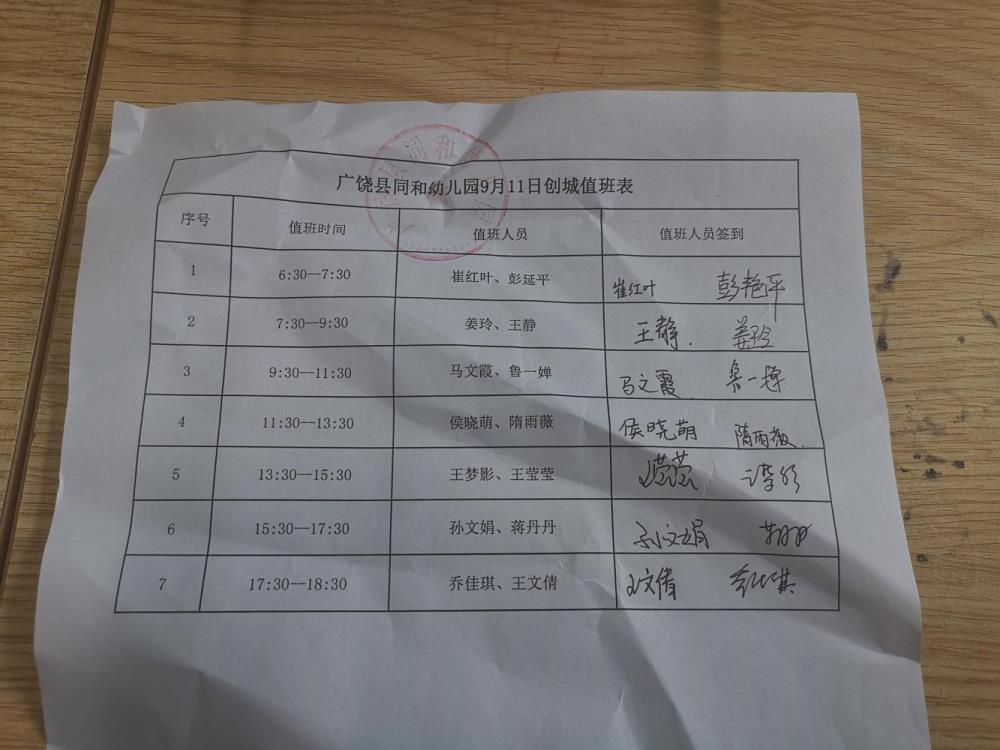 同和
广饶县同和幼儿园9月11日创城值班表
序号 值班时间 值班人员 值班人员签到
1 6:30--7:30 崔红叶、彭延平 崔红叶 彭艳平
2 7:30--9:30 姜玲、王静 王静. 姜玲
3 9:30--11:30 马文霞、鲁一婵 马文霞 鲁一婵
4 11:30--13:30 侯晓萌、隋雨薇 侯晓萌 隋雨薇.
5 13:30--15:30 王梦影、王莹莹
6 15:30--17:30 孙文娟、蒋丹丹 孙文娟
7 17:30--18:30 乔佳琪、王文倩 王文倩 乔佳琪